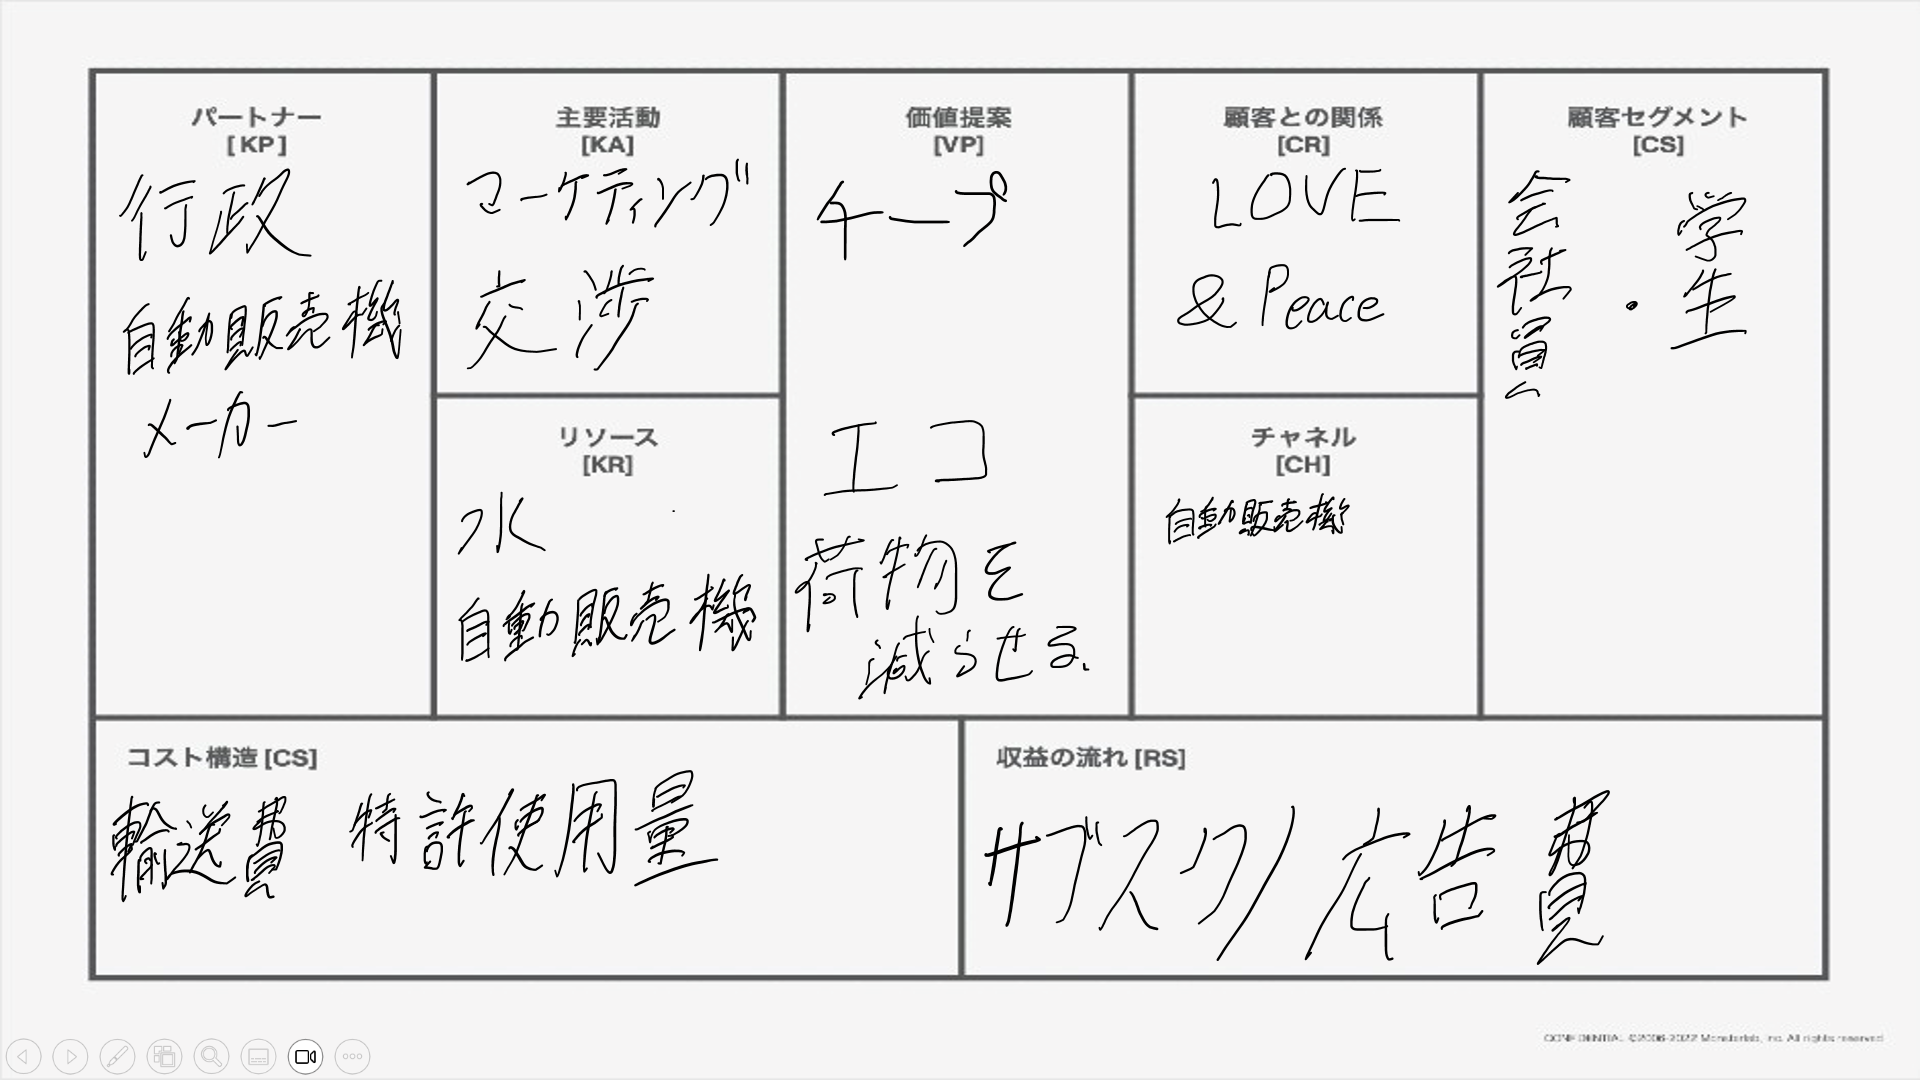 パートナー
[KP]
行政
自動販売機
メーカー
主要活動
[KA]
マーケティング
交渉
リソース
[KR]
水
自動販売機
価値提案
[VP]
チープ
エコ
荷物を
減らせる、
顧客との関係
[CR]
LOVE
& Peace
チャネル
[CH]
自動販売機
顧客セグメント
[CS]
会社員・学生
コスト構造 [CS]
輸送費 特許使用量
収益の流れ [RS]
サブスク/広告費
CONFIDENTIAL ©2006-2022 Monsterlab, Inc. All rights reserved